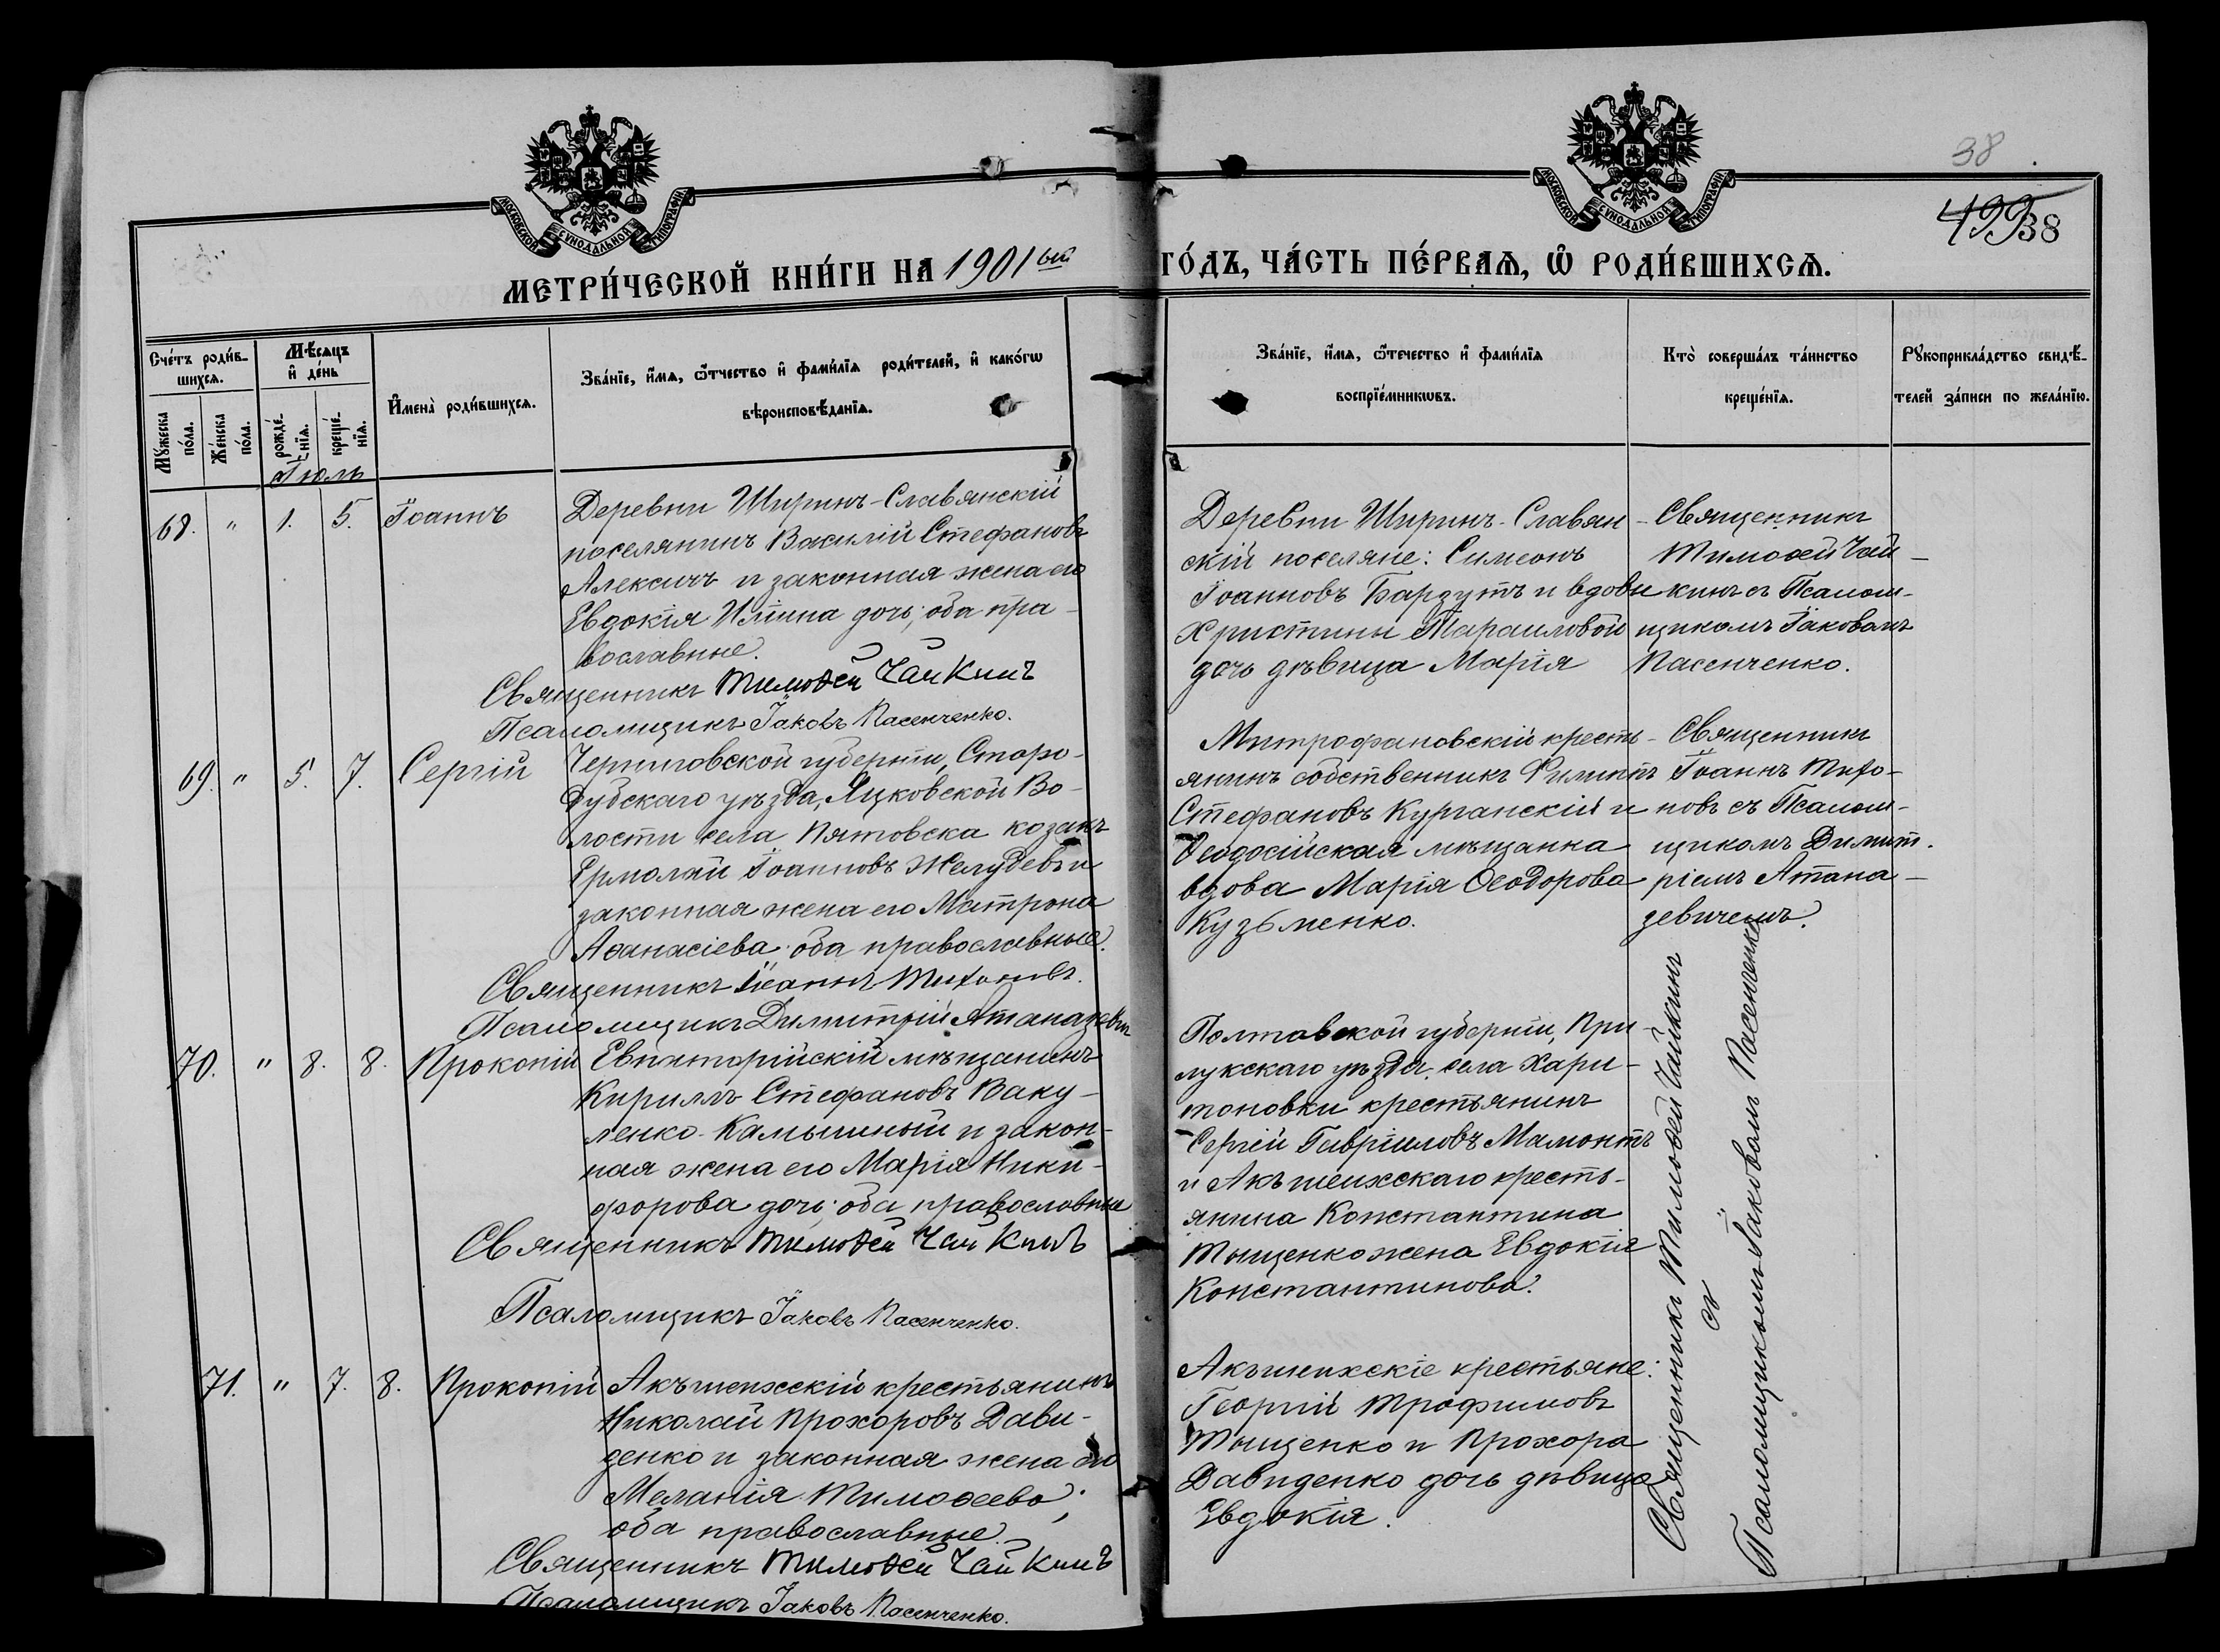 38
499 38
МОСКОВСКОЙ СѴНОДАЛЬНОЙ ТИПОГРАФІИ
МОСКОВСКОЙ СѴНОДАЛЬНОЙ ТИПОГРАФІИ
МЕТРИ́ЧЕСКОЙ КНИ́ГИ НА 1901ый ГО́ДЪ, ЧА́СТЬ ПЕ́РВАѦ, Ѡ҆ РОДИ́ВШИХСѦ.
Сче́тъ роди́в-
шихсѧ.
Мꙋ́жеска
по́ла.
Же́нска
по́ла.
Мѣ́сѧцъ
и҆ де́нь
рожде́-
нїѧ.
креще́-
нїѧ.
И҆мена̀ роди́вшихсѧ.
Зва́нїе, и҆́мѧ, ѻ҆́тчество и҆ фами́лїѧ роди́телей, и҆ како́гѡ
вѣроисповѣ́данїѧ.
Зва́нїе, и҆́мѧ, ѻ҆те́чество и҆ фами́лїѧ
воспрїе́мникѡвъ.
Кто̀ соверша́лъ та́инство
креще́нїѧ.
Рꙋкоприкла́дство свидѣ́-
телей за́писи по жела́нїю.
Іюль
68. " 1. 5. Іоаннъ
Деревни Ширинъ-Славянскій
поселянинъ Василій Стефановъ
Алексичъ и законная жена его
Евдокія Иліина дочь; оба пра-
вославные.
Священникъ Тимоѳей Чайкинъ
Псаломщикъ Іаковъ Пасенченко.
Деревни Ширинъ-Славян-
скій поселяне: Симеонъ
Іоанновъ Барзутъ и вдовы
Христины Мараиловой
дочь дѣвица Марія
Священникъ
Тимоѳей Чай-
кинъ съ Псалом-
щикомъ Іаковомъ
Пасенченко.
69. " 5. 7. Сергій
Черниговской губерніи, Старо-
дубскаго уѣзда, Яцковской Во-
лости села Пятовска козакъ
Ермолай Іоанновъ Желудевъ и
законная жена его Матрона
Аѳанасіева; оба православные.
Священникъ Іоаннъ Тихоновъ.
Псаломщикъ Димитрій Атаназевич
Митрофановскій кресть-
янинъ собственникъ Филиппъ
Стефановъ Курганскій и
Ѳеодосійская мѣщанка
вдова Марія Ѳеодорова
Кузьменко.
Священникъ
Іоаннъ Тихо-
новъ съ Псалом-
щикомъ Димит-
ріемъ Атана-
зевичемъ.
70. " 8. 8. Прокопій
Евпаторійскій мѣщанинъ
Кириллъ Стефановъ Ваку-
ленко-Камышный и закон-
ная жена его Марія Ники-
форова дочь; оба православные
Священникъ Тимоѳей Чайкинъ
Псаломщикъ Іаковъ Пасенченко.
Полтавской губерніи, При-
лукскаго уѣзда, села Хари-
тоновки крестьянинъ
Сергій Гавріиловъ Мамонтъ
и Акъ-шеихскаго кресть-
янина Константина
Тыщенко жена Евдокія
Константинова.
71. " 7. 8. Прокопій
Акъ-шеихскій крестьянинъ
Николай Прохоровъ Дави-
денко и законная жена его
Меланія Тимоѳеева;
оба православные.
Священникъ Тимоѳей Чайкинъ
Псаломщикъ Іаковъ Пасенченко.
Акъ-шеихскіе крестьяне:
Георгій Трофимовъ
Тыщенко и Прохора
Давиденко дочь дѣвица
Евдокія.
Священникъ Тимоѳей Чайкинъ
съ
Псаломщикомъ Іаковомъ Пасенченко